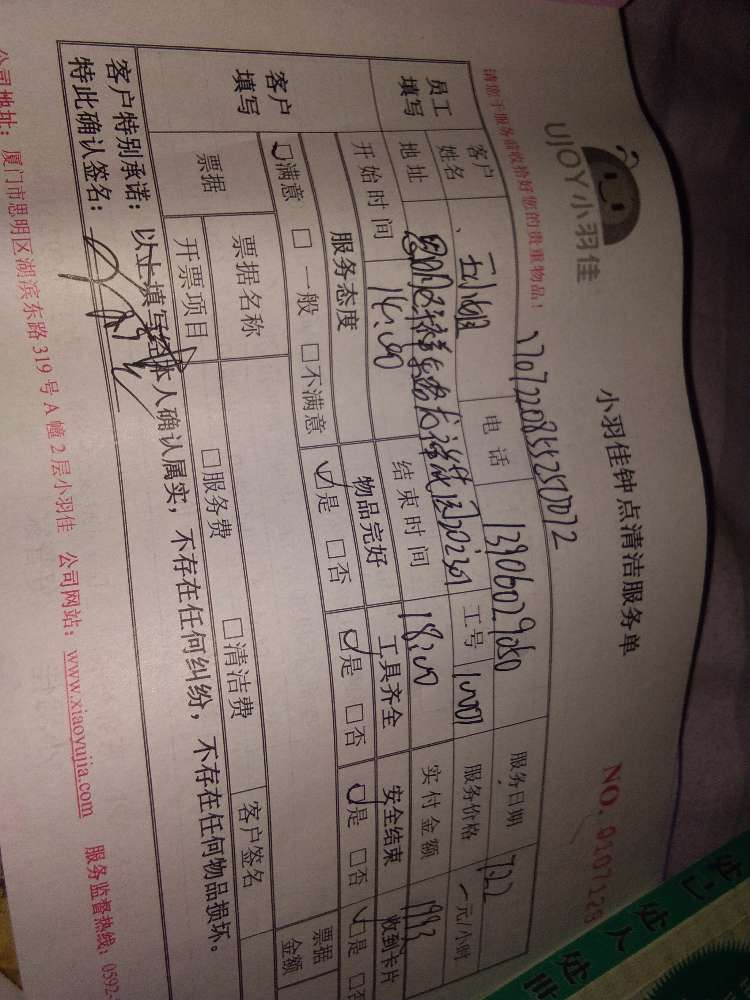 UJOY小羽佳
小羽佳钟点清洁服务单
NO. 0107128
请您于服务前收拾好您的贵重物品!
员工填写
客户姓名
电话 13906029050
服务日期 7.22
地址
工号
服务价格 一元/小时
开始时间 14:00
结束时间 18:00
实付金额 1993
客户填写
服务态度 物品完好 工具齐全 安全结束 收到卡片
☑满意 □一般 □不满意 ☑是 □否 ☑是 □否 ☑是 □否 ☑是 □否
票据
票据名称 客户签名 票据金额
开票项目 □服务费 □清洁费
客户特别承诺:以上填写经本人确认属实,不存在任何纠纷,不存在任何物品损坏。
特此确认签名:
公司地址:厦门市思明区湖滨东路319号A幢2层小羽佳 公司网站:www.xiaoyujia.com 服务监督热线:0592-